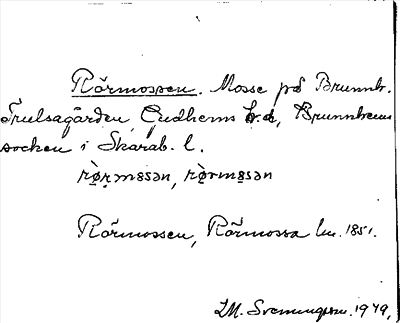 Rörmossen. Mosse på Brunnh.
Trulsagården, Gudhems h:d, Brunnhems
socken i Skarab. l.
rö̀r̥mɷsən, rö̀rmɷsən
Rörmossen, Rörmossa lm. 1851.
I.M. Svenningson. 1949.